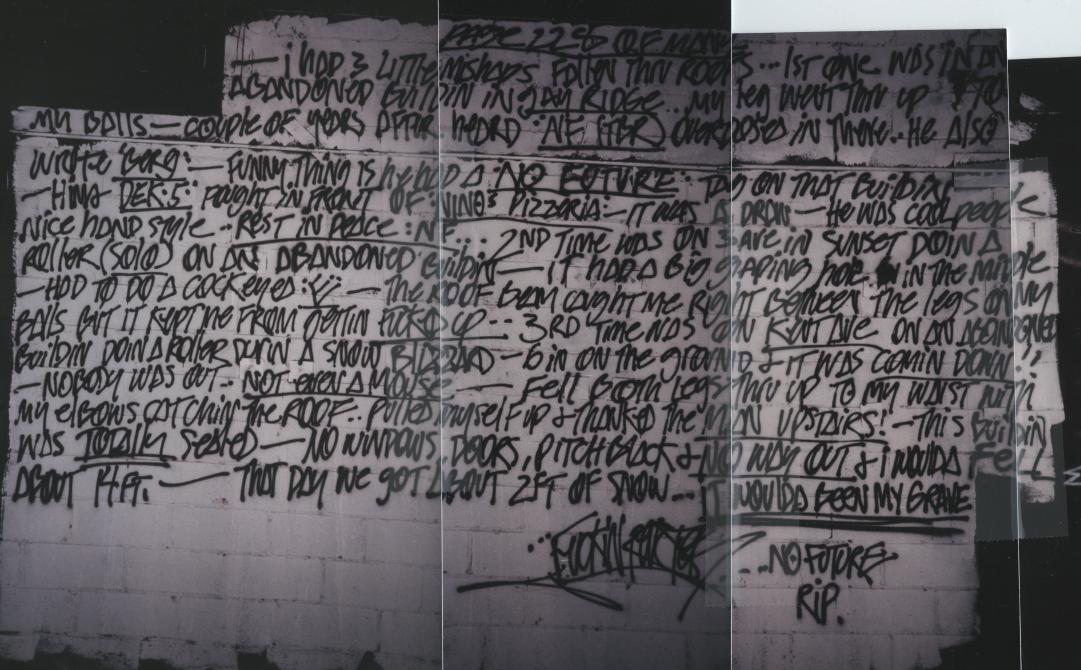 PAGE 228 OF MANY
— i HAD 3 LiTTle MiSHAPS FALLEN THRU ROOFS... 1ST ONE WAS IN AN
ABANDONED BUILDIN IN BAY RIDGE.. MY leg WENT THRU UP TO
MY BALLS — COUPLE OF YEARS AFTER HEARD NE OVERDOSED IN THERE.. HE ALSO
WROTE BERG — FUNNY THING IS HE HAD A NO FUTURE TAG ON THAT BUILDIN
— HIM & DEK.5 FOUGHT IN FRONT OF NINO'S PIZZERIA — IT WAS A DRAW — HE WAS COOL people
NICE HAND STYLE.. REST IN PEACE : NE... 2ND TIME WAS ON 3 AVE IN SUNSET DOIN A
ROLLER (SOLO) ON AN ABANDONED BUILDIN — IT HAD A BIG GAPING HOLE IN THE MIDDLE
— HAD TO DO A COCKEYED — THE ROOF BEAM CAUGHT ME RIGHT BETWEEN THE LEGS ON MY
BALLS BUT IT KEPT ME FROM GETTIN FUCKED UP.. 3RD TIME WAS ON KENT AVE ON AN ABANDONED
BUILDIN DOIN A ROLLER DURIN A SNOW BLIZZARD — 6 IN ON THE GROUND & IT WAS COMIN DOWN!!
— NOBODY WAS OUT.. NOT EVEN A MOUSE — FELL BOTH LEGS THRU UP TO MY WAIST WITH
MY ELBOWS CATCHIN THE ROOF.. PULLED MYSELF UP & THANKED THE MAN UPSTAIRS! — THIS BUILDIN
WAS TOTALLY SEALED — NO WINDOWS, DOORS, PITCH BLACK & NO WAY OUT & i WOULDA FELL
ABOUT 14 FT. — THAT DAY WE GOT ABOUT 2 FT OF SNOW... IT WOULDA BEEN MY GRAVE
...NO FUTURE
RIP.